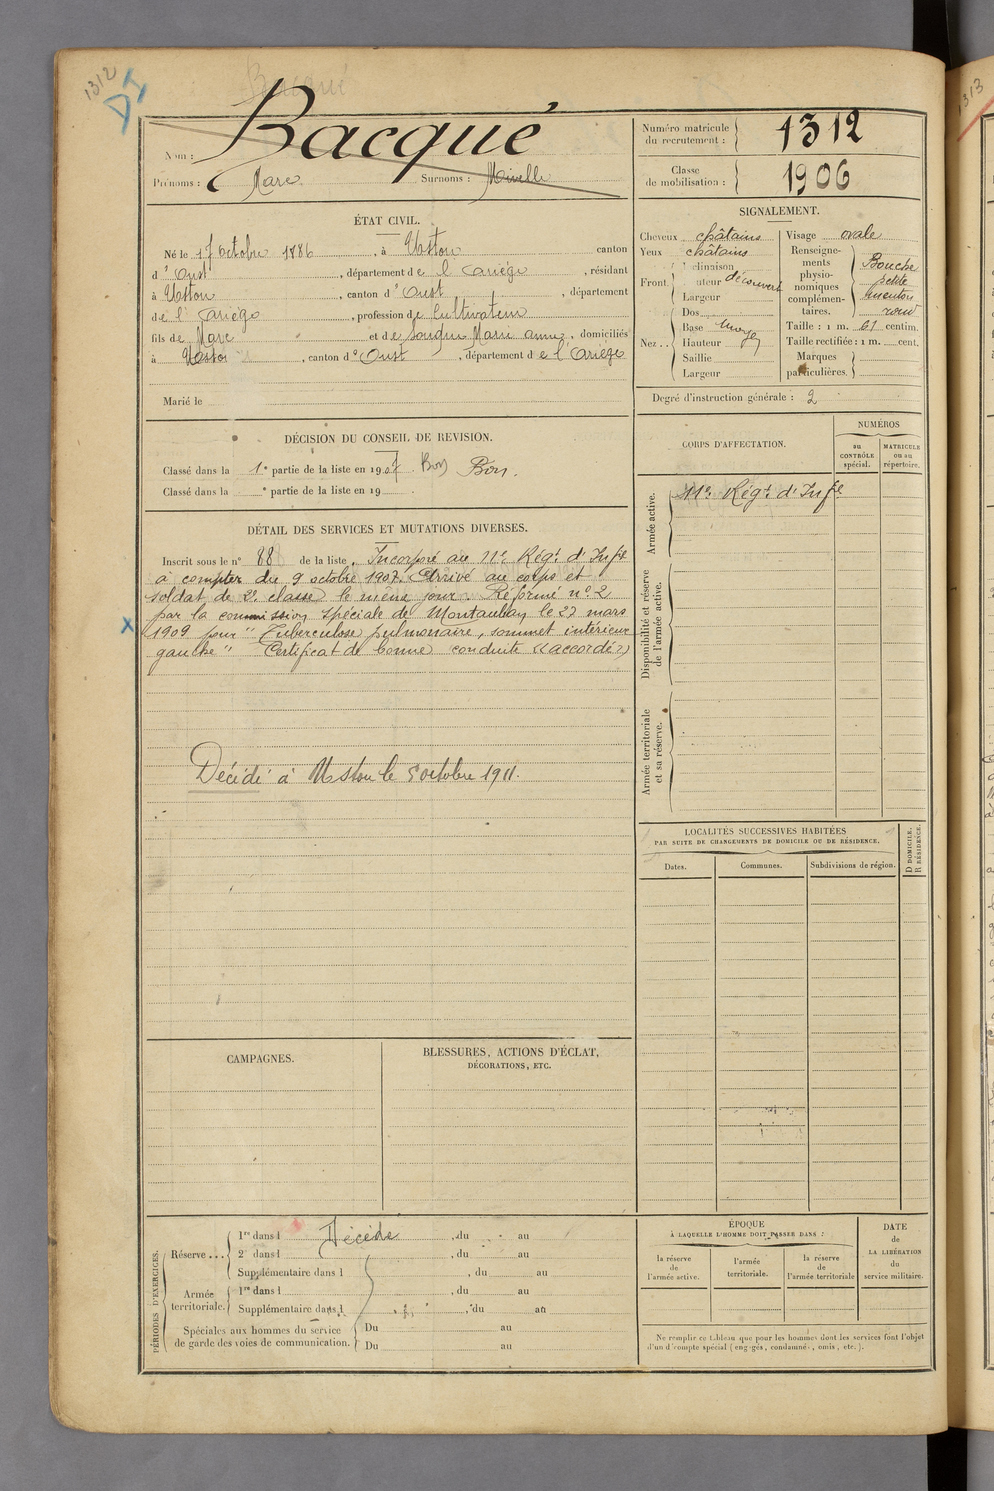 1312
Bacqué
Nom : Bacqué
Prénoms : Marc Surnoms :
Numéro matricule du recrutement : 1312
Classe de mobilisation : 1906
ÉTAT CIVIL.
Né le 17 octobre 1886, à Ustou canton
d'Oust, département de l'Ariège, résidant
à Ustou, canton d'Oust, département
de l'Ariège, profession de Cultivateur
fils de Marc et de Souquê Marie Anne, domiciliés
à Ustou, canton d'Oust, département de l'Ariège
Marié le
SIGNALEMENT.
Cheveux châtains
Yeux châtains
Front. Inclinaison
Hauteur découvert
Largeur
Nez.. Dos
Base moyen
Hauteur
Saillie
Largeur
Visage ovale
Renseignements physionomiques complémentaires. Bouche petite menton rond
Taille : 1 m. 61 centim.
Taille rectifiée : 1 m. cent.
Marques particulières.
Degré d'instruction générale : 2
DÉCISION DU CONSEIL DE REVISION.
Classé dans la 1e partie de la liste en 1907. Bon Bon.
Classé dans la e partie de la liste en 19
CORPS D'AFFECTATION.
NUMÉROS
au CONTRÔLE spécial.
MATRICULE ou au répertoire.
Armée active.
11e Régt d'Infie
Disponibilité et réserve de l'armée active.
Armée territoriale et sa réserve.
DÉTAIL DES SERVICES ET MUTATIONS DIVERSES.
Inscrit sous le n° 88 de la liste. Incorporé au 11e Régt d'Infie
à compter du 9 octobre 1907. Arrivé au corps et
soldat de 2e classe le même jour. Réformé n° 2
par la commission spéciale de Montauban le 27 mars
1909 pour " Tuberculose pulmonaire, sommet intérieur
gauche " Certificat de bonne conduite "accordé"
Décédé à Ustou le 5 octobre 1911.
LOCALITÉS SUCCESSIVES HABITÉES
PAR SUITE DE CHANGEMENTS DE DOMICILE OU DE RÉSIDENCE.
Dates.
Communes.
Subdivisions de région.
D DOMICILE.
R RÉSIDENCE.
CAMPAGNES.
BLESSURES, ACTIONS D'ÉCLAT,
DÉCORATIONS, ETC.
PÉRIODES D'EXERCICES.
Réserve... 1re dans l Décédé, du au
2e dans l, du au
Supplémentaire dans l, du au
Armée territoriale. 1re dans l, du au
Supplémentaire dans l, du au
Spéciales aux hommes du service de garde des voies de communication. Du au
Du au
ÉPOQUE
À LAQUELLE L'HOMME DOIT PASSER DANS :
la réserve de l'armée active.
l'armée territoriale.
la réserve de l'armée territoriale
DATE DE LA LIBÉRATION du service militaire.
Ne remplir ce tableau que pour les hommes dont les services font l'objet
d'un décompte spécial (engagés, condamnés, omis, etc.).
1313